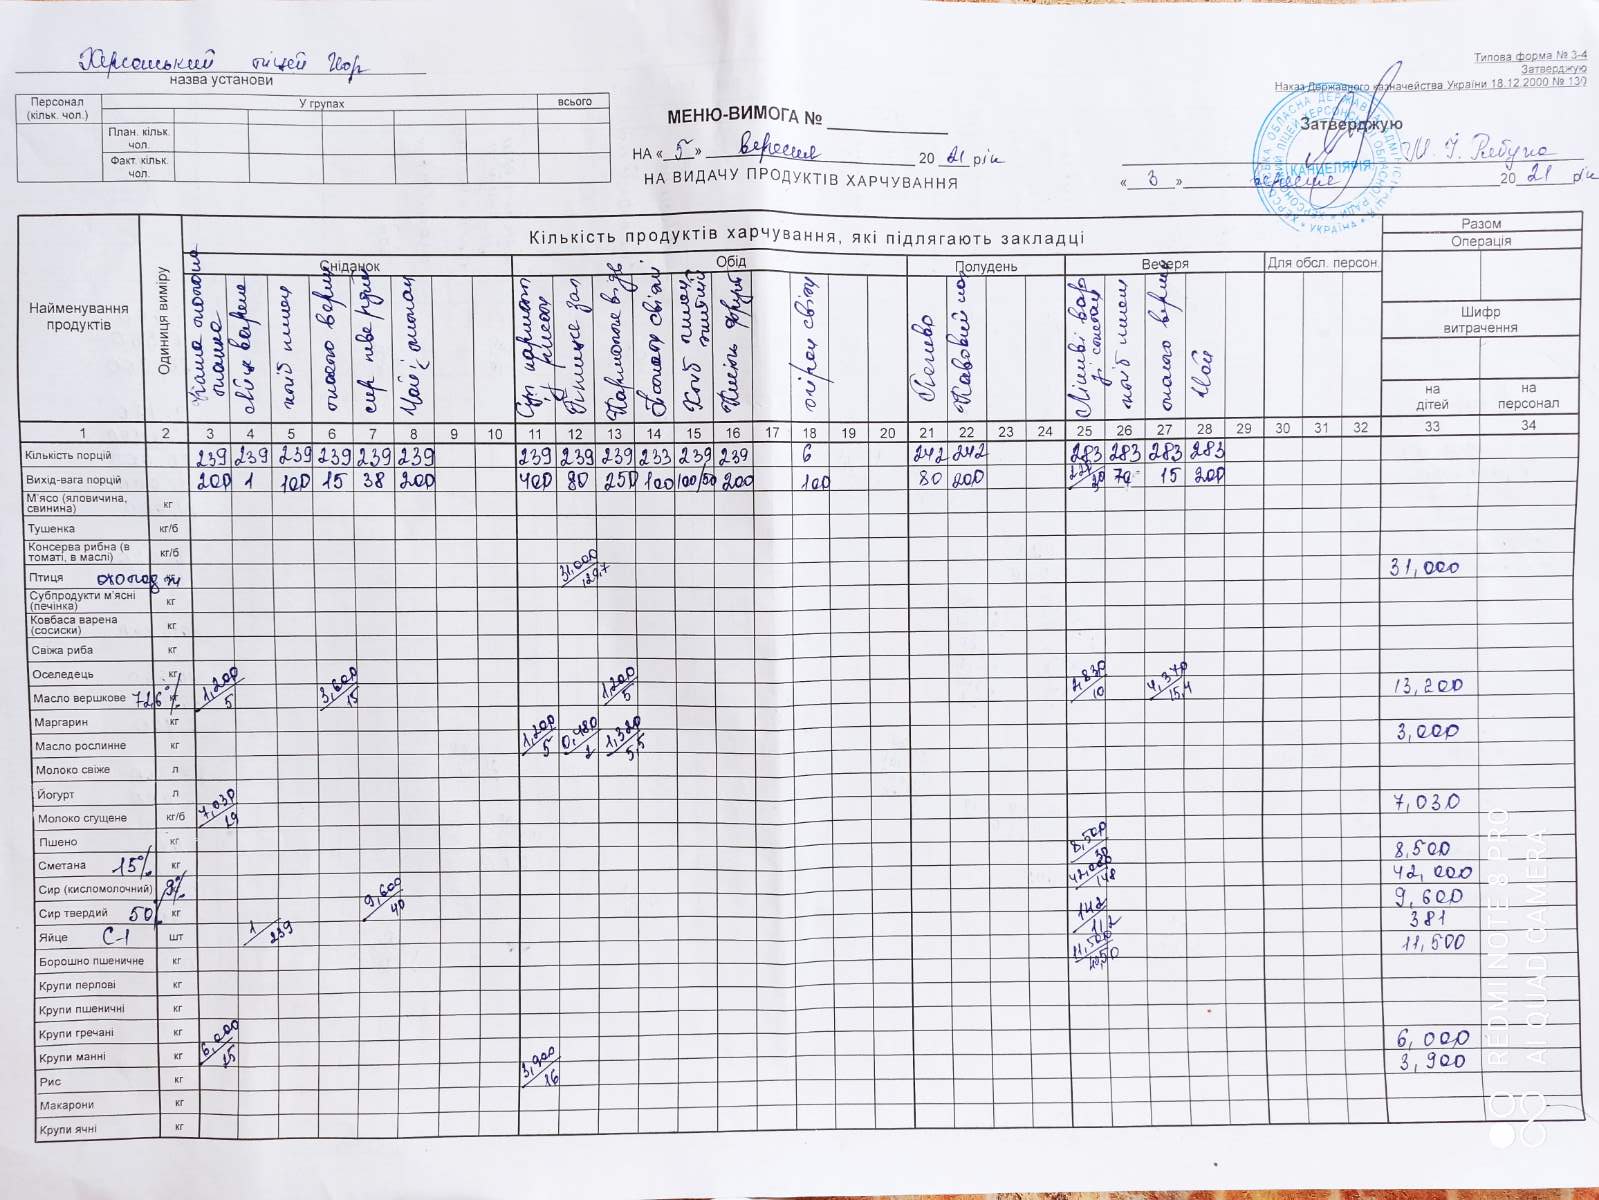 Типова форма № 3-4
Затверджую
Наказ Державного казначейства України 18.12.2000 № 130
Херсонський ліцей
назва установи
Персонал (кільк. чол.) У групах всього
План. кільк. чол.
Факт. кільк. чол.
МЕНЮ-ВИМОГА №
НА « 5 » вересня 20 21 рік
НА ВИДАЧУ ПРОДУКТІВ ХАРЧУВАННЯ
Затверджую
КАНЦЕЛЯРІЯ
УКРАЇНА
« 3 » вересня 20 21 рік
Найменування продуктів
Одиниця виміру
Кількість продуктів харчування, які підлягають закладці
Разом
Операція
Сніданок Обід Полудень Вечеря Для обсл. персон.
Шифр витрачення
на дітей на персонал
Каша молочна манна
Яйце варене
хліб пшен
масло верш
сир твердий
Чай
Суп
Печиво
хліб пшен
масло верш
Чай
1 2 3 4 5 6 7 8 9 10 11 12 13 14 15 16 17 18 19 20 21 22 23 24 25 26 27 28 29 30 31 32 33 34
Кількість порцій 239 239 239 239 239 239 239 239 239 233 239 239 6 242 242 283 283 283 283
Вихід-вага порцій 200 1 100 15 38 200 400 80 250 100 100/50 200 100 80 200 70 15 200
М'ясо (яловичина, свинина) кг
Тушенка кг/б
Консерва рибна (в томаті, в маслі) кг/б
Птиця охолодж 31,000/129,7 31,000
Субпродукти м'ясні (печінка) кг
Ковбаса варена (сосиски) кг
Свіжа риба кг
Оселедець кг
Масло вершкове 72,6% кг 1,200/5 3,600/15 1,200/5 2,830/10 4,370/15,4 13,200
Маргарин кг
Масло рослинне кг 1,200/5 0,480/2 1,320/5,5 3,000
Молоко свіже л
Йогурт л
Молоко сгущене кг/б 7,030/29 7,030
Пшено кг
Сметана 15% кг 8,500/30 8,500
Сир (кисломолочний) 9% 42,000/148 42,000
Сир твердий 50 кг 9,600/40 9,600
Яйце С-1 шт 1/239 142/1/2 381
Борошно пшеничне кг 11,500/40,50 11,500
Крупи перлові кг
Крупи пшеничні кг
Крупи гречані кг
Крупи манні кг 6,000/25 6,000
Рис кг 3,900/16 3,900
Макарони кг
Крупи ячні кг
REDMI NOTE 8 PRO
AI QUAD CAMERA